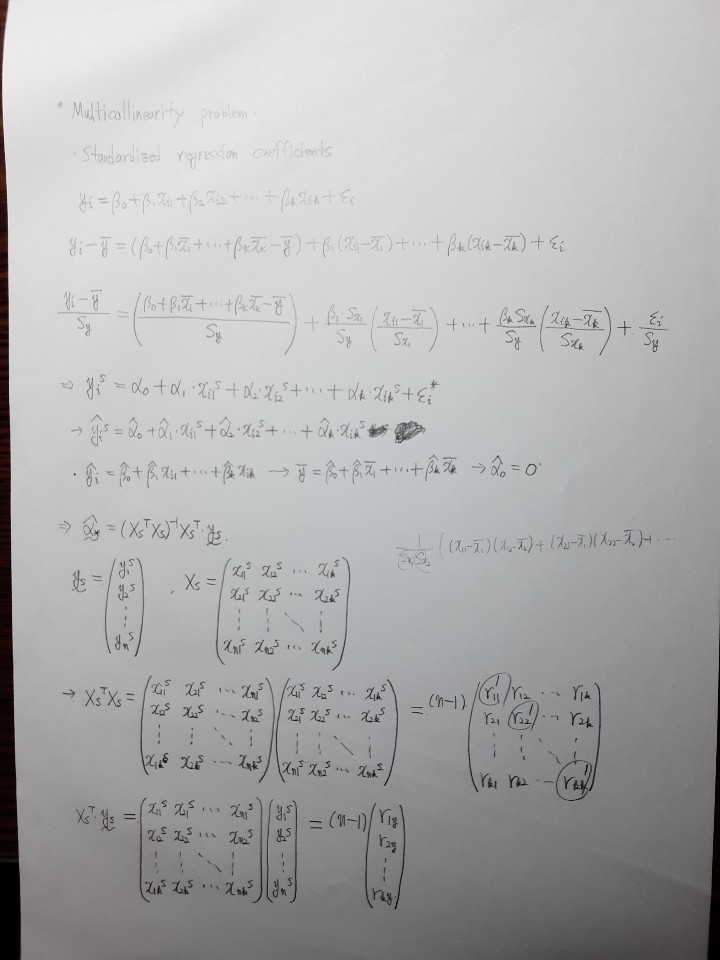 * Multicollinearity problem.
· Standardized regression coefficients
yi = β0 + β1xi1 + β2xi2 + ··· + βkxik + εi
yi − ȳ = (β0 + β1x̄1 + ··· + βkx̄k − ȳ) + β1(xi1 − x̄1) + ··· + βk(xik − x̄k) + εi
(yi − ȳ)/Sy = ((β0 + β1x̄1 + ··· + βkx̄k − ȳ)/Sy) + (β1·Sx1/Sy)((xi1 − x̄1)/Sx1) + ··· + (βkSxk/Sy)((xik − x̄k)/Sxk) + εi/Sy
⇒ yi^s = α0 + α1·xi1^s + α2·xi2^s + ··· + αk·xik^s + εi*
→ ŷi^s = α̂0 + α̂1·xi1^s + α̂2·xi2^s + ··· + α̂k·xik^s
· ŷi = β̂0 + β̂1xi1 + ··· + β̂kxik → ȳ = β̂0 + β̂1x̄1 + ··· + β̂kx̄k → α̂0 = 0
⇒ α̂ = (Xs^T Xs)^-1 Xs^T · ys.
1/(Sx1Sx2) ((x11 − x̄1)(x12 − x̄2) + (x21 − x̄1)(x22 − x̄2) + ···
ys = (y1^s y2^s ⋮ yn^s), Xs = (x11^s x12^s ··· x1k^s
x21^s x22^s ··· x2k^s
⋮ ⋮ ⋱ ⋮
xn1^s xn2^s ··· xnk^s)
→ Xs^T Xs = (x11^s x21^s ··· xn1^s) (x11^s x12^s ··· x1k^s) = (n−1) (r11 1 r12 ··· r1k)
x12^s x22^s ··· xn2^s x21^s x22^s ··· x2k^s r21 r22 1 ··· r2k
⋮ ⋮ ⋱ ⋮ ⋮ ⋮ ⋱ ⋮ ⋮ ⋮ ⋱ ⋮
x1k^s x2k^s ··· xnk^s xn1^s xn2^s ··· xnk^s rk1 rk2 ··· rkk 1
Xs^T · ys = (x11^s x21^s ··· xn1^s) (y1^s) = (n−1) (r1y)
x12^s x22^s ··· xn2^s y2^s r2y
⋮ ⋮ ⋱ ⋮ ⋮ ⋮
x1k^s x2k^s ··· xnk^s yn^s rky